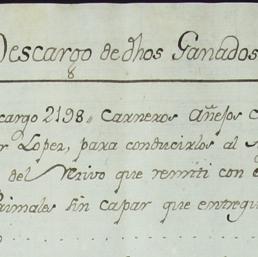 Descargo de dhos Ganados
cargo 2198 Carneros Añejos
Lopez, para conducirlos al
del Nrivo que remiti con
Primales sin capar que entregu